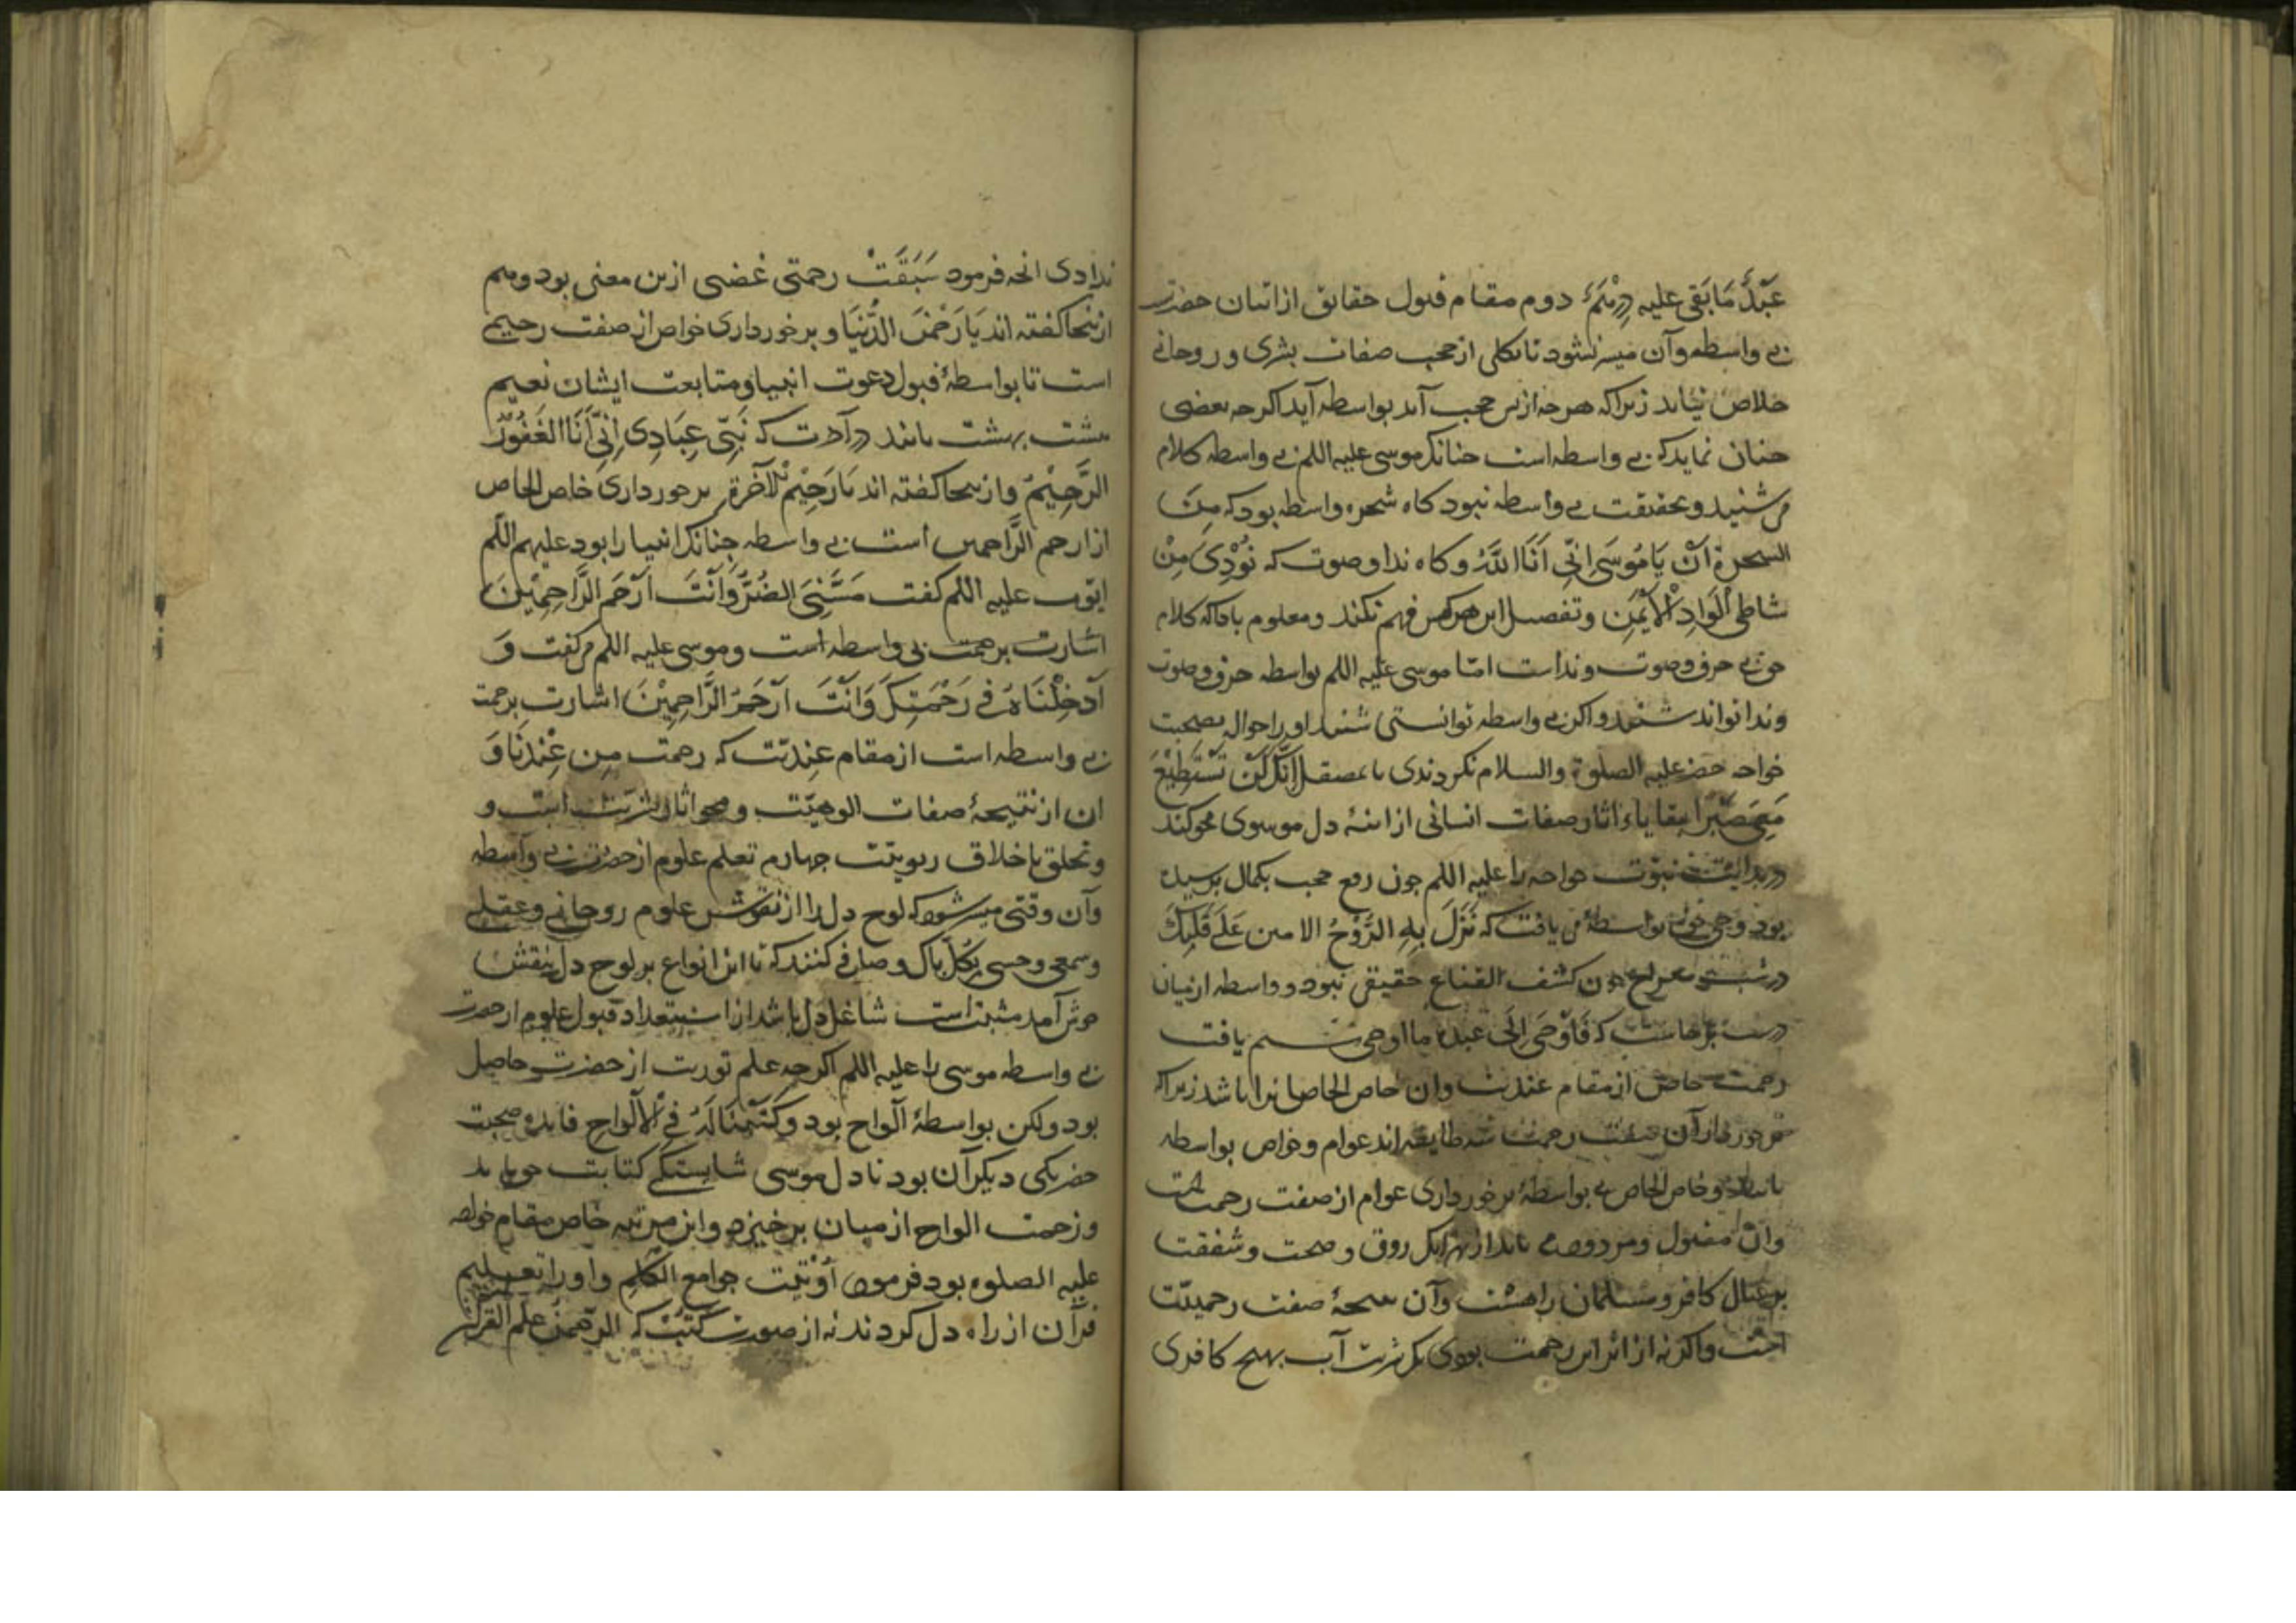 عَبْدٌ مَا بَقِیَ علیه دِرْهَمٌ دوم مقام قبول حقایق از اتیان حضرت
بی واسطه وآن میسر نشود تا بکلی از حجب صفات بشری و روحانی
خلاص نیابد زیرا که هرچه از پس حجب آید بواسطه آید اکرچه بعضی
چنان نماید که بی واسطه است چنانک موسی علیه اللم بی واسطه کلام
می شنید و بحقیقت بی واسطه نبود کاه شجره واسطه بود که مِنَ
الشجرة اَنْ یَا مُوسَی اِنِّی اَنَا اللَّهُ و کاه ندا و صوت که نُوْدِیَ مِنْ
شاطی الْوَادِ الْاَیْمَنِ و تفصیل این هرکس فهم نکند و معلوم باد که کلام
حق بی حرف و صوت و نداست امّا موسی علیه اللم بواسطه حرف و صوت
و ندا تواند شنید و اکر بی واسطه توانستی شنید او را حواله بصحبت
خواجه خضر علیه الصلوة والسلام نکردندی تا بمصقل اِنَّکَ لَنْ تَسْتَطِیْعَ
مَعِیَ صَبْرًا بقایاء اثار صفات انسانی از اینهٔ دل موسوی محو کند
در بدایت نبوّت خواجه را علیه اللم چون رفع حجب بکمال نرسیده
بود وحی بواسطهٔ می یافت که نَزَلَ بِهِ الرُّوْحُ الامین عَلَی قَلْبِکَ
در شب معراج چون کشف القناع حقیقی نبود و واسطه از میان
برخاست که فَاَوْحَی اِلَی عبده ما اوحی سیم یافت
رحمت خاص از مقام عندیت و ان خاص الخاص انرا باشد زیرا که
برخوردار از آن صفت رحمت سه طایفه اند عوام و خواص بواسطه
و خاص الخاص بی بواسطه برخورداری عوام از صفت رحمت
وان مقبول و مردود می یابد از روزی و صحت و شفقت
بر عیال کافر و مسلمان را هست وآن نتیجهٔ صفت رحمیّت
است واکرنه از اثر این رحمت بودی یک شربت آب بهیچ کافری
ندادی انچه فرمود سَبَقَتْ رحمتی غضبی ازین معنی بود و هم
از ینجا کفته اند یَا رَحْمٰنَ الدُّنْیَا و برخورداری خواص از صفت رحیمی
است تا بواسطهٔ قبول دعوت انبیا و متابعت ایشان نعیم
هشت بهشت یابند که نَبِّیْ عِبَادِی اِنِّی اَنَا الْغَفُوْرُ
الرَّحِیْمُ و از ینجا کفته اند یَا رَحِیْمَ الْآخرة برخورداری خاص الخاص
از ارحم الرَّاحمین است بی واسطه چنانک انبیا را بود علیهم اللم
ایّوب علیه اللم کفت مَسَّنِیَ الضُّرُّ وَاَنْتَ اَرْحَمُ الرَّاحِمِیْنَ
اشارت برحمت بی واسطه است و موسی علیه اللم می کفت وَ
اَدْخِلْنَا فِی رَحْمَتِکَ وَاَنْتَ اَرْحَمُ الرَّاحِمِیْنَ اشارت برحمت
بی واسطه است از مقام عِندیّت که رحمت مِن عِنْدِنَا وَ
ان از نتیجهٔ صفات الوهیّت و محو اثار بشریّت است و
و تخلق باخلاق ربوبیّت چهارم تعلم علوم از حضرت بی واسطه
وآن وقتی میسر شود که لوح دل را از نقوش علوم روحانی و عقلی
و سمعی و حسی بکل پاک و صافی کنند که تا این انواع بر لوح دل
مثبت است شاغل دل باشد از استعداد قبول علوم از حضرت
بی واسطه موسی را علیه اللم اکرچه علم توریت از حضرت حاصل
بود ولکن بواسطهٔ الواح بود وَکَتَبْنَا لَهُ فِی الْاَلْوَاحِ فایده صحبت
خضر یکی دیکر آن بود تا دل موسی شایستکی کتابت حق یابد
و زحمت الواح از میان برخیزد و این مرتبه خاص مقام خواجه
علیه الصلوه بود فرمود اُوْتِیْتُ جوامع الْکَلِمِ و او را تعلیم
قرآن از راه دل کردند نه از صورت کتبت که الرَّحْمٰنُ عَلَّمَ الْقُرْآنَ